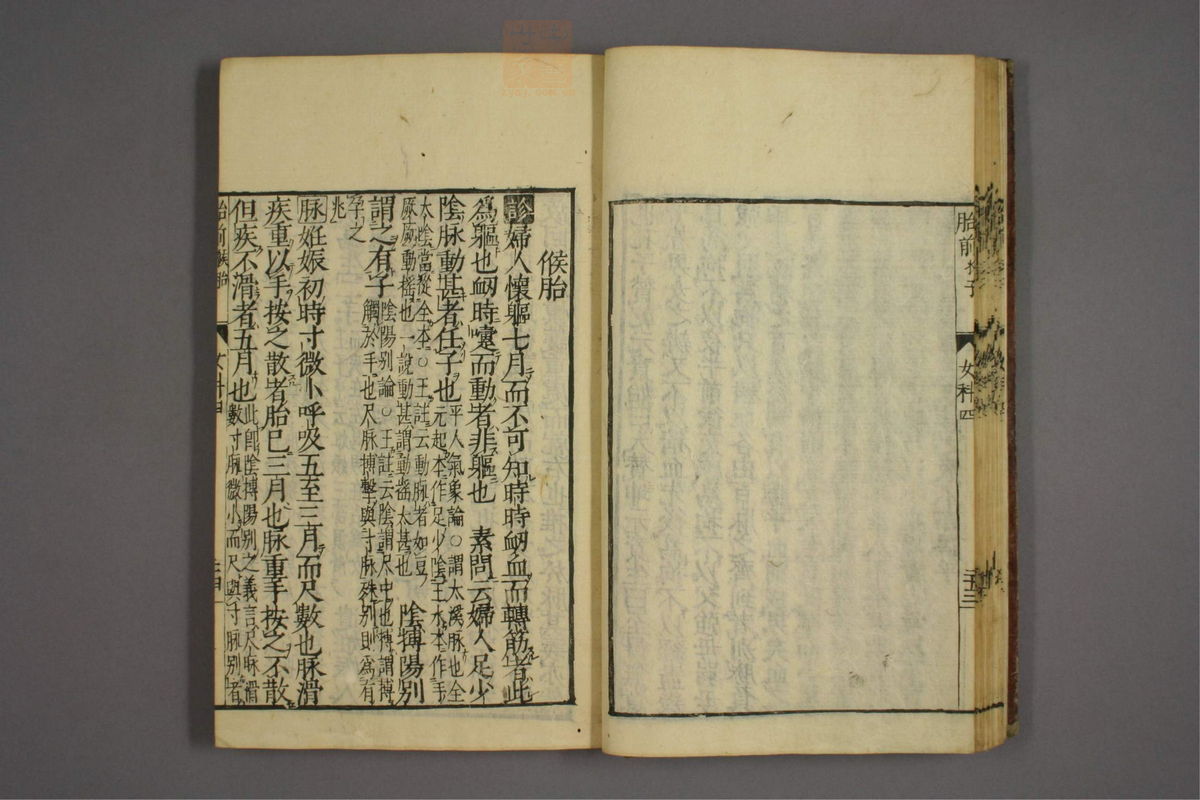 胎前求子
女科四
三十三
候胎
診婦人懷軀七月而不可知時時衂血而轉筋者此
為軀也衂時嚏而動者非軀也　素問云婦人足少
陰脉動甚者任子也平人氣象論○謂太溪脉也全
元起本作足少陰王氷本作手
太陰當從全本○王註云動脉者如豆
厥厥動搖也一說動甚謂動搖太甚也　陰搏陽别
謂之有子陰陽别論○王註云陰謂尺中也搏謂搏
觸於手也尺脉搏擊與寸脉殊别則為有
孕之
兆
脉妊娠初時寸微小呼吸五至三月而尺數也脉滑
疾重以手按之散者胎已三月也脉重手按之不散
但疾不滑者五月也此卽陰搏陽别之義言尺脉滑
數寸脉微小而尺與寸脉别者
胎前候胎
女科四